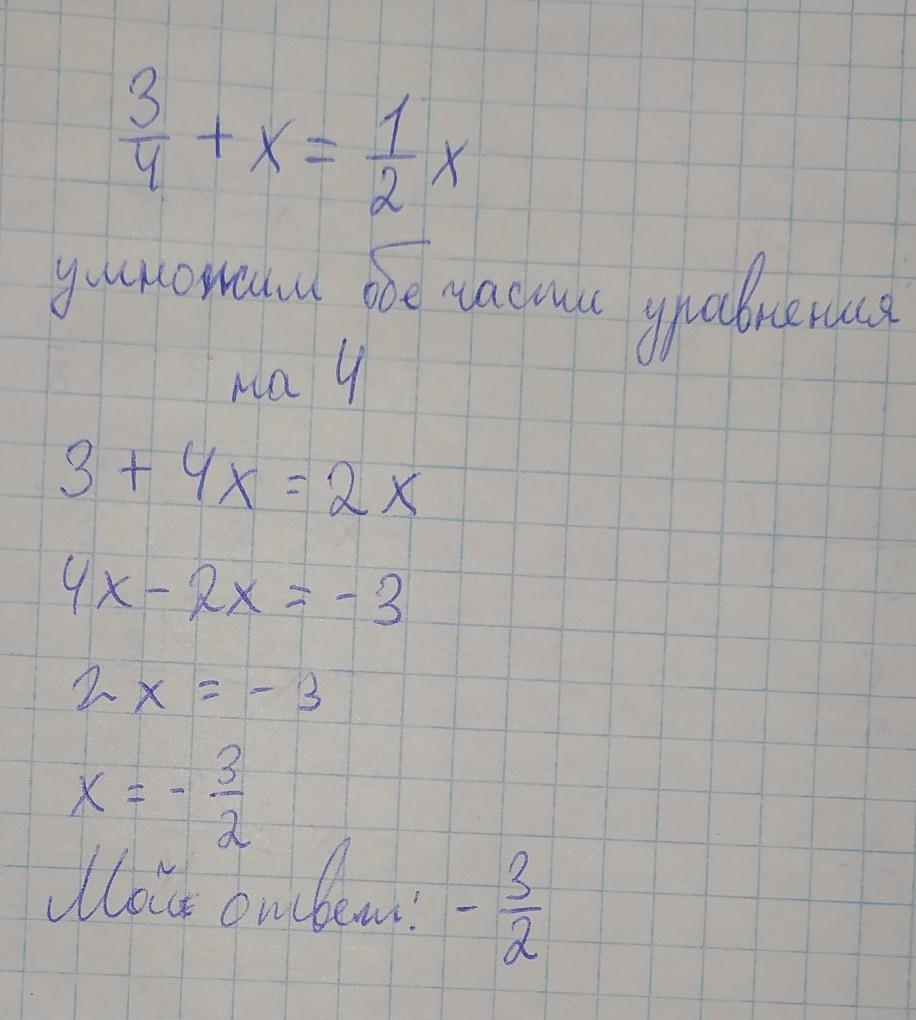 3/4 + x = 1/2 x
умножим обе части уравнения
на 4
3 + 4x = 2x
4x - 2x = -3
2x = -3
x = - 3/2
Мой ответ: - 3/2